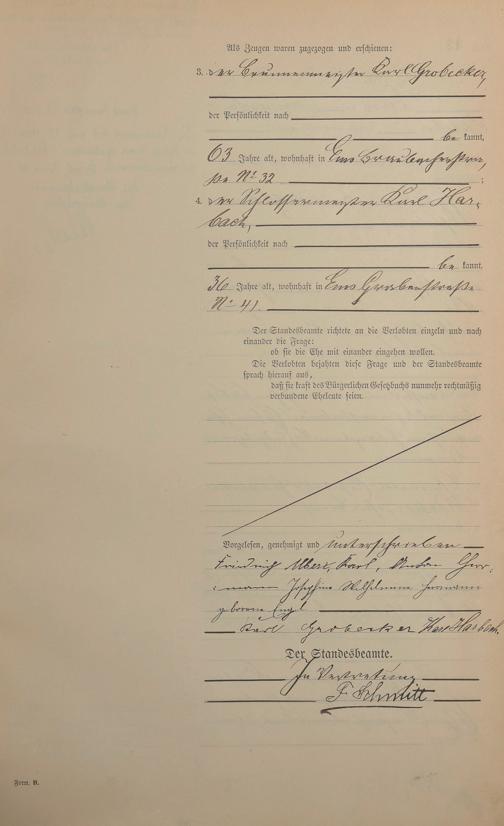 Als Zeugen waren zugezogen und erschienen:
3. der Brunnenmeister Karl Grobecker,
der Persönlichkeit nach
be kannt,
63 Jahre alt, wohnhaft in Ems Braubacherstra,
ße No 32 ;
4. der Schlossermeister Karl Har-
bach,
der Persönlichkeit nach
be kannt,
36 Jahre alt, wohnhaft in Ems Grabenstraße
No 41.
Der Standesbeamte richtete an die Verlobten einzeln und nach
einander die Frage:
ob sie die Ehe mit einander eingehen wollen.
Die Verlobten bejahten diese Frage und der Standesbeamte
sprach hierauf aus,
daß sie kraft des Bürgerlichen Gesetzbuchs nunmehr rechtmäßig
verbundene Eheleute seien.
Vorgelesen, genehmigt und unterschrieben
Friedrich Albert, Karl, Anton Herr-
mann Josephine Wilhelmine Herrmann
geborene Engel
Karl Grobecker Harbach.
Der Standesbeamte.
In Vertretung
F Schmitt
Form. B.